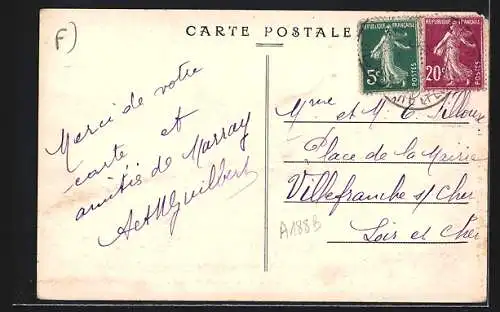 F)
CARTE POSTALE
REPUBLIQUE FRANÇAISE
5c
POSTES
REPUBLIQUE FRANÇAISE
20c
POSTES
Merci de votre
carte et
amitiés de Marray
Guilbert
Mme et M.
Place de la Mairie
Villefranche s/ Cher
Loir et Cher
A188B